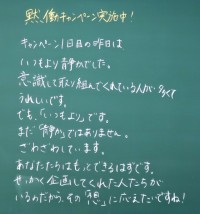 黙働キャンペーン実施中！
キャンペーン1日目の昨日は
いつもより静かでした。
意識して取り組んでくれている人が多くて
うれしいです。
でも、「いつもより」です。
まだ「静か」ではありません。
ざわざわしています。
あなたたちはもっとできるはずです。
せっかく企画してくれた人たちが
いるのだから、その「想」に応えたいですね！